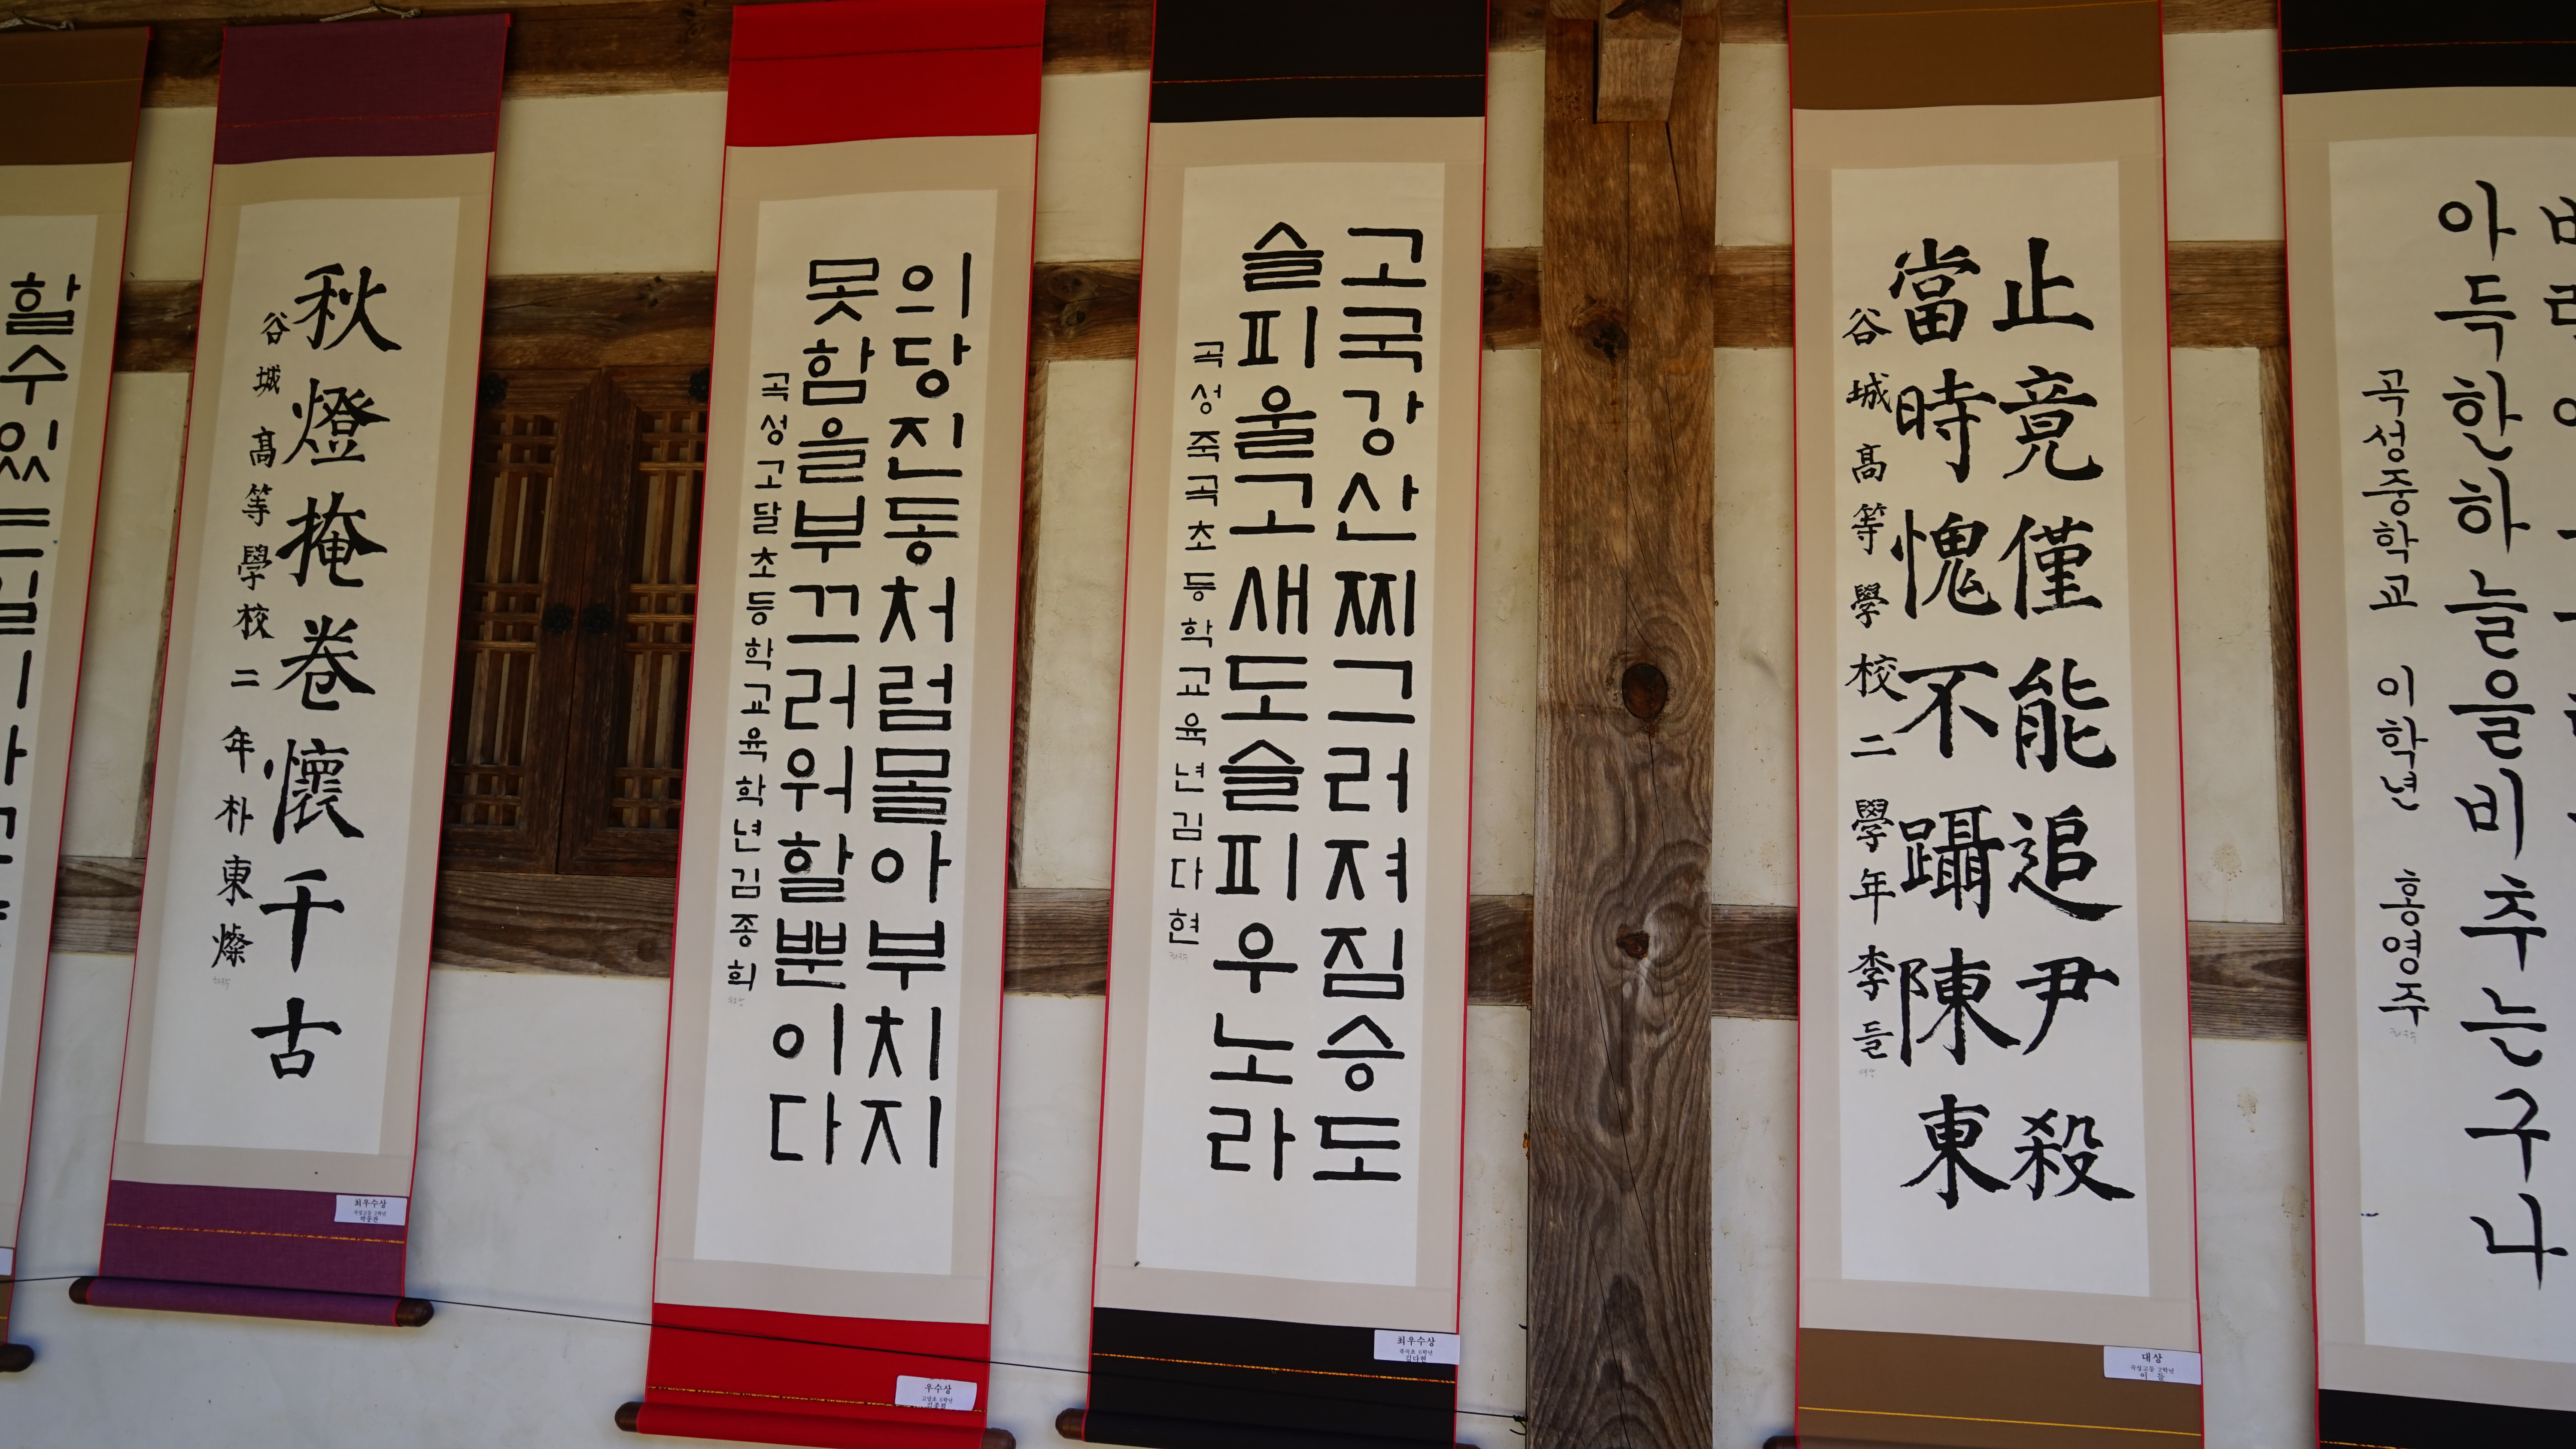 할수있
秋燈掩卷懷千古
谷城高等學校二年朴東燦
최우수상
곡성고등 2학년
박동찬
의당진동처럼몰아부치지
못함을부끄러워할뿐이다
곡성고달초등학교육학년김종희
우수상
고달초 6학년
김종희
고국강산찌그러져짐승도
슬피울고새도슬피우노라
곡성죽곡초등학교육년김다현
최우수상
죽곡초 6학년
김다현
止竟僅能追尹殺
當時愧不躡陳東
谷城高等學校二學年李들
대상
곡성고등 2학년
이 들
아득한하늘을비추는구나
곡성중학교 이학년 홍영주